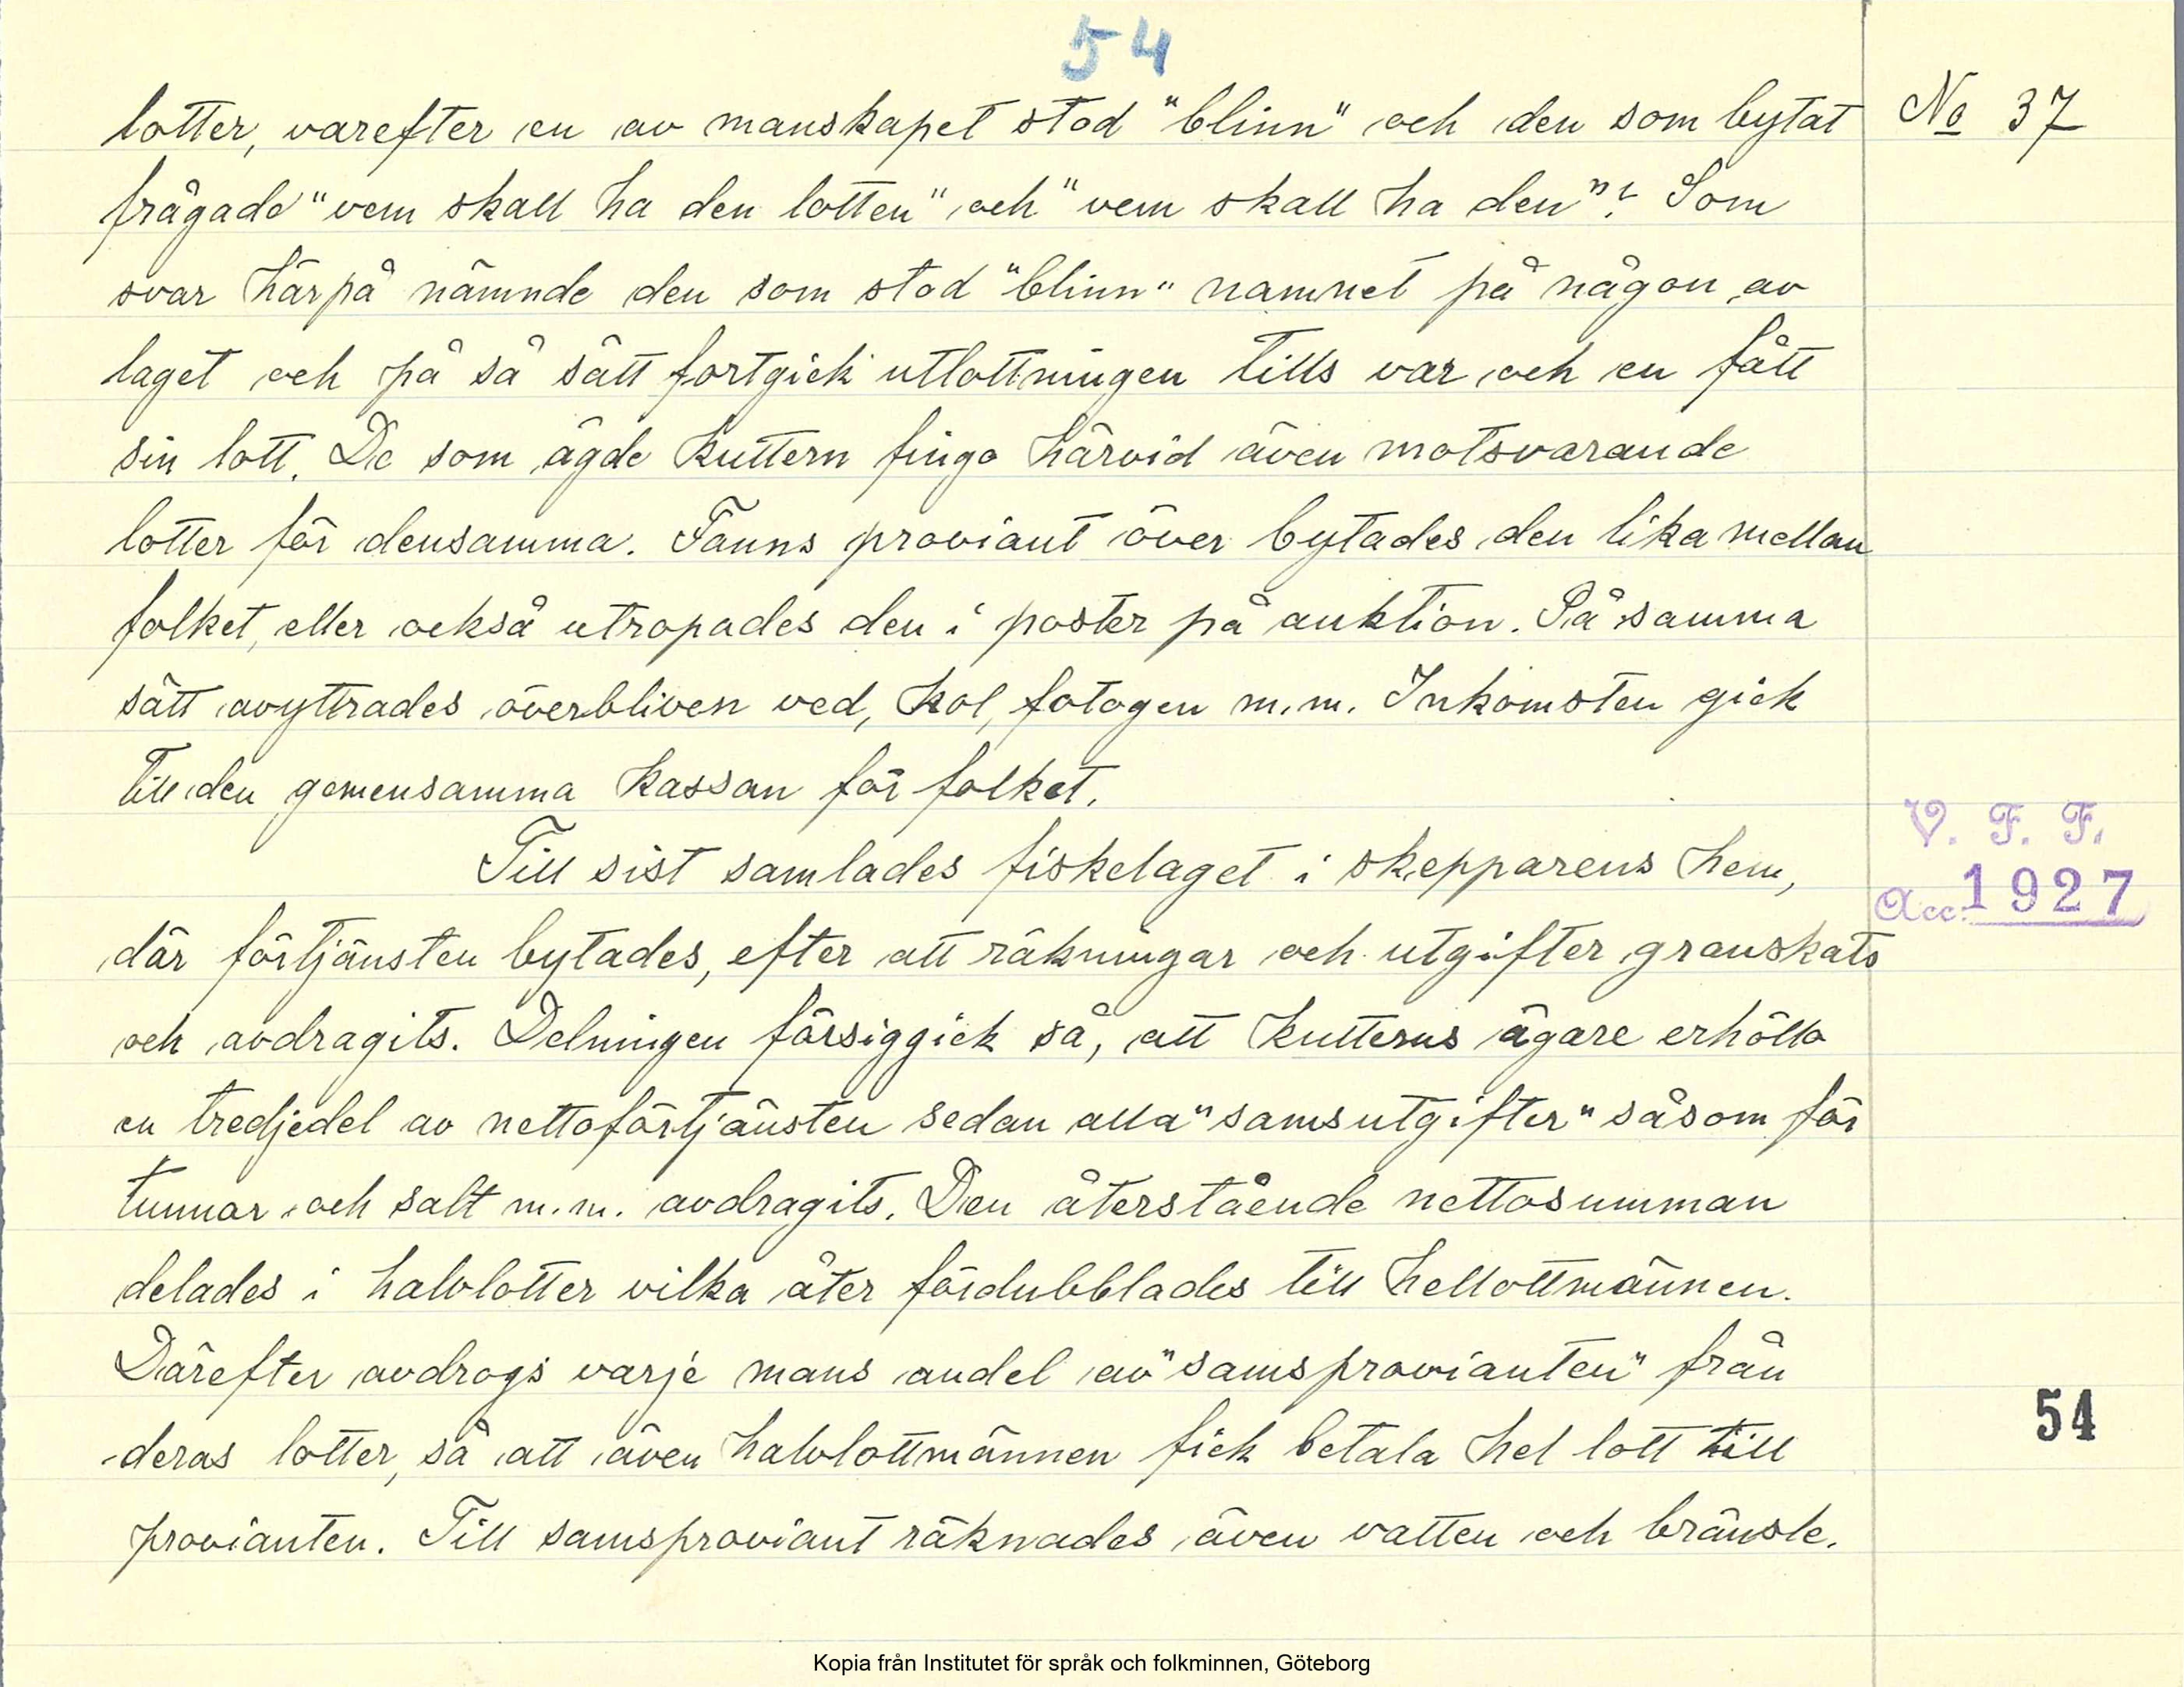 54
lotter, varefter en av manskapet stod "blinn" och den som bytat
No 37
frågade "vem skall ha den lotten" och "vem skall ha den"? Som
svar härpå nämnde den som stod "blinn" namnet på någon av
laget och på så sätt fortgick utlottningen tills var och en fått
sin lott. De som ägde kuttern fingo härvid även motsvarande
lotter för densamma. Fanns proviant över bytades den lika mellan
folket, eller också utropades den i poster på auktion. På samma
sätt avyttrades överbliven ved, kol, fotogen m.m. Inkomsten gick
till den gemensamma kassan för folket.
Till sist samlades fiskelaget i skepparens hem,
V. F. F.
Acc. 1927
där förtjänsten bytades, efter att räkningar och utgifter granskats
och avdragits. Delningen försiggick så, att kutterns ägare erhöllo
en tredjedel av nettoförtjänsten sedan alla "samsutgifter" såsom för
tunnor och salt m.m. avdragits. Den återstående nettosumman
delades i halvlotter vilka åter fördubblades till hellottmännen.
Därefter avdrogs varje mans andel av "samsprovianten" från
deras lotter, så att även halvlottmännen fick betala hel lott till
54
provianten. Till samsproviant räknades även vatten och bränsle.
Kopia från Institutet för språk och folkminnen, Göteborg